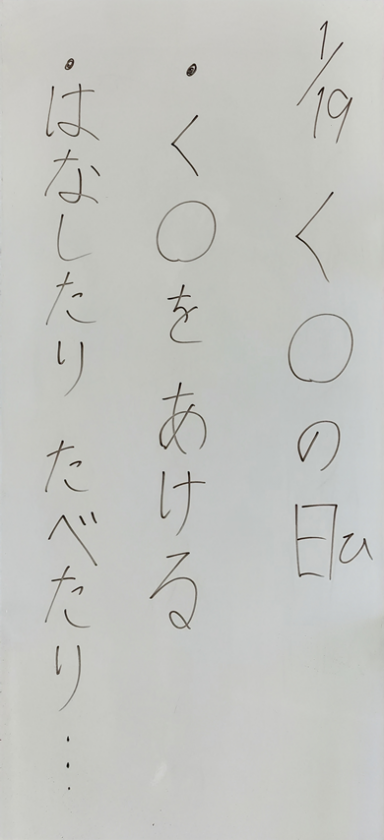 1/19 く○の日ひ
・く○をあける
・はなしたり たべたり…